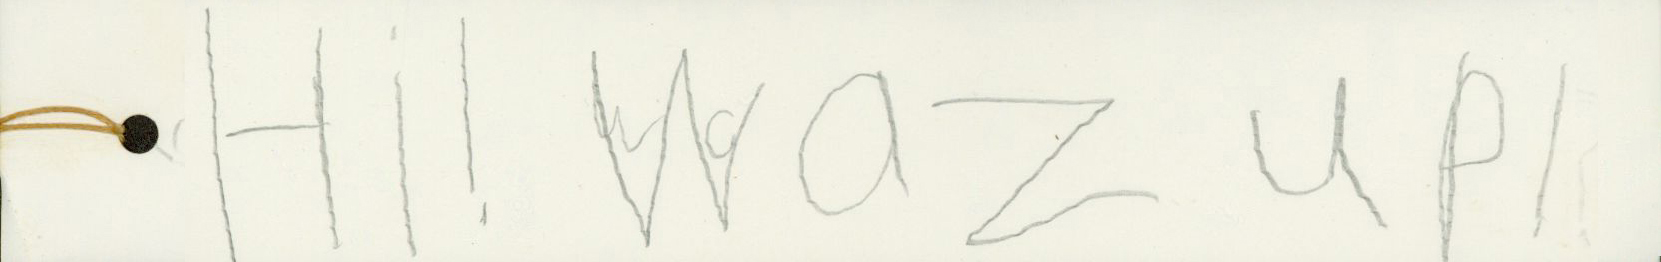 Hi! Waz up!